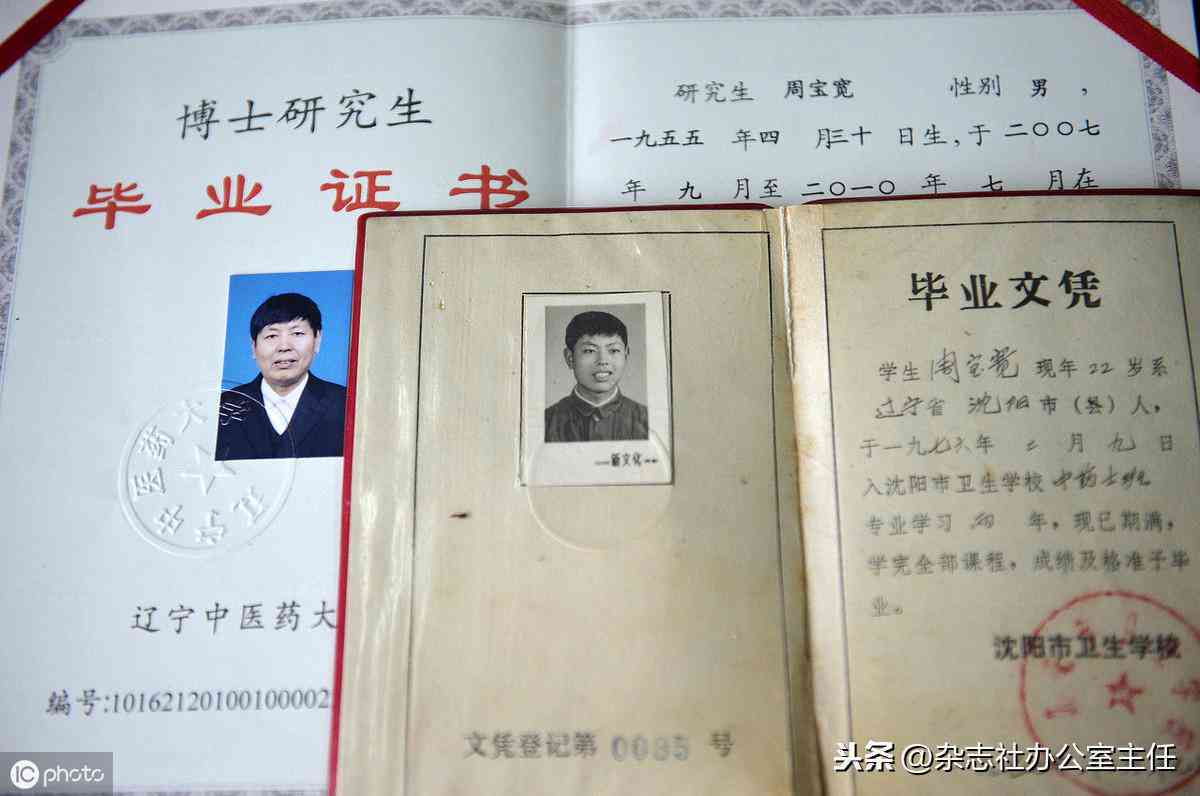 博士研究生
毕业证书
研究生 周宝宽 性别 男，
一九五五 年四 月三十 日生，于 二〇〇七
年 九 月至 二〇一〇 年 七 月在
辽宁中医药大
编号:101621201001000002
新文化
文凭登记第 0085 号
毕业文凭
学生 周宝宽 现年 22 岁系
辽宁省 沈阳 市（县）人，
于一九七六年 二 月 九 日
入沈阳市卫生学校 中药士班
专业学习 两 年，现已期满，
学完全部课程，成绩及格准予毕
业。
沈阳市卫生学校
iC photo
头条 @杂志社办公室主任